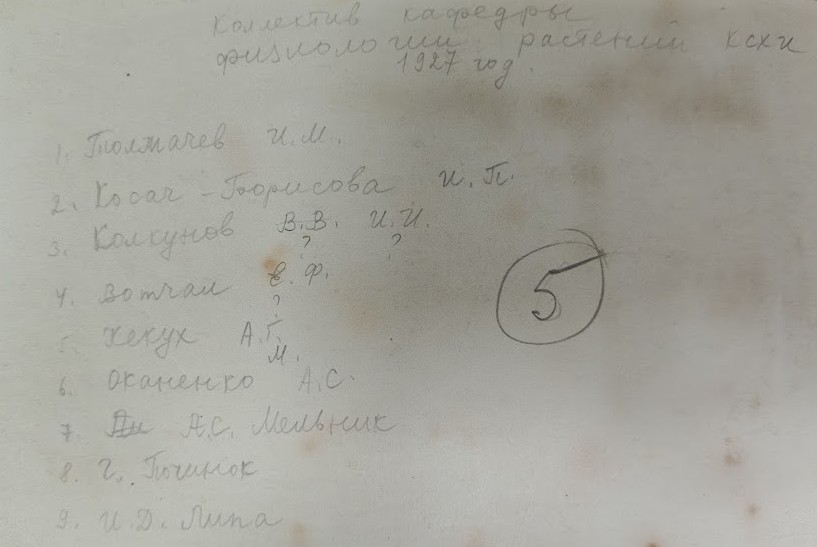 Коллектив кафедры
физиологии растений КСХИ
1927 год.
1. Толмачев И.М.
2. Косач-Борисова И.П.
3. Колкунов В.В. И.И.
? ?
4. Вотчал Е.Ф.
?
5. Кекух А.Г.
М.
6. Оканенко А.С.
7. А.С. Мельник
8. Г. Починок
9. И.Д. Липа
5